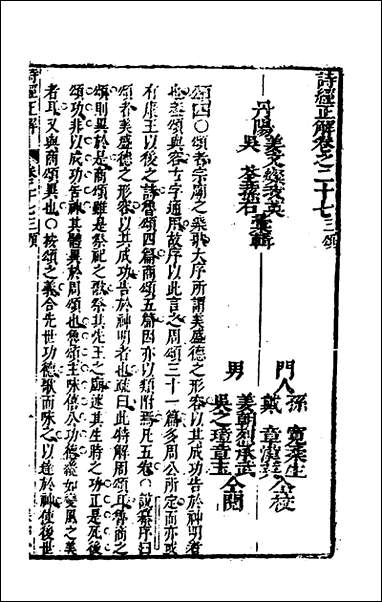 詩經正解卷之二十七 三頌
丹陽 姜文燦我英
吳 荃蓀右 彙輯
門人 孫 寬柔生
戴 章漢 仝校
男 姜朝烈承武
吳之璋章玉 仝閱
頌四〇頌者宗廟之樂歌大序所謂美盛德之形容以其成功告於神明者
也葢頌與容古字通用故序以此言之周頌三十一篇多周公所定而亦或
有康王以後之詩魯頌四篇商頌五篇因亦以類附焉凡五卷〇說葢序曰
頌者美盛德之形容以其成功告於神明者也疏曰此特解周頌耳魯商之
頌則異於是商頌雖是祭祀之歌祭其先王之廟述其生時之功正是死後
頌功非以成功告神其體異於周頌也魯頌主咏僖公功德纔如變風之美
者耳又與商頌異也〇按頌之義合先世功德歌而咏之以達於神使後世
詩經正解 卷二十七 三頌